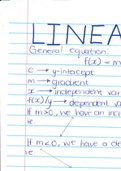 LINEA
General equation:
f(x) = m
c → y-intercept
m → gradient
x → independent var
f(x)/y → dependent va
If m>0, we have an inc
ie
If m<0, we have a de
ie